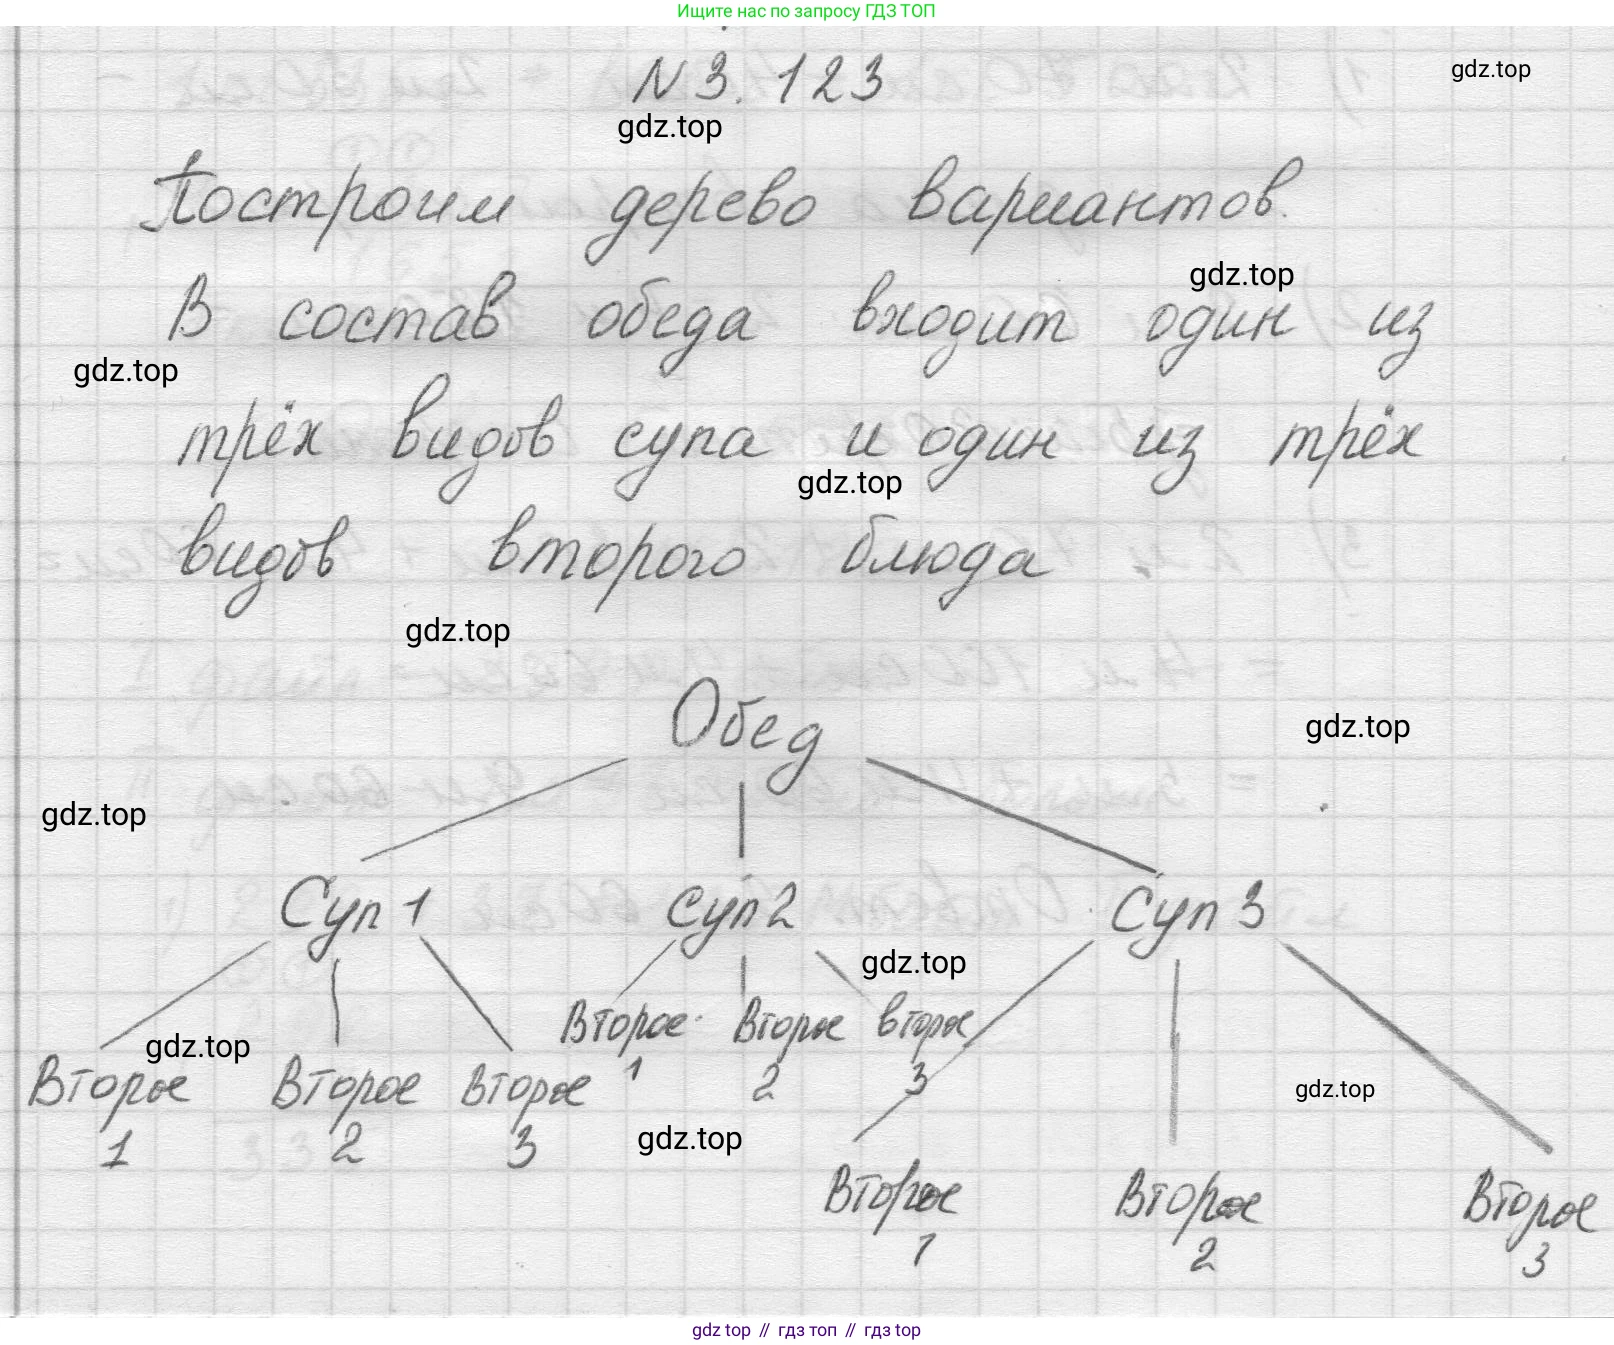 Ищите нас по запросу ГДЗ ТОП
N 3. 123
gdz.top
gdz.top
Построим дерево вариантов.
gdz.top
В состав обеда входит один из
gdz.top
трёх видов супа и один из трёх
gdz.top
видов второго блюда
gdz.top
Обед
gdz.top
gdz.top
Суп 1 Суп 2 Суп 3
gdz.top
Второе Второе второе
1 2 3
gdz.top
Второе Второе Второе
1 2 3
gdz.top
gdz.top
Второе Второе Второе
1 2 3
gdz top // гдз топ // гдз top